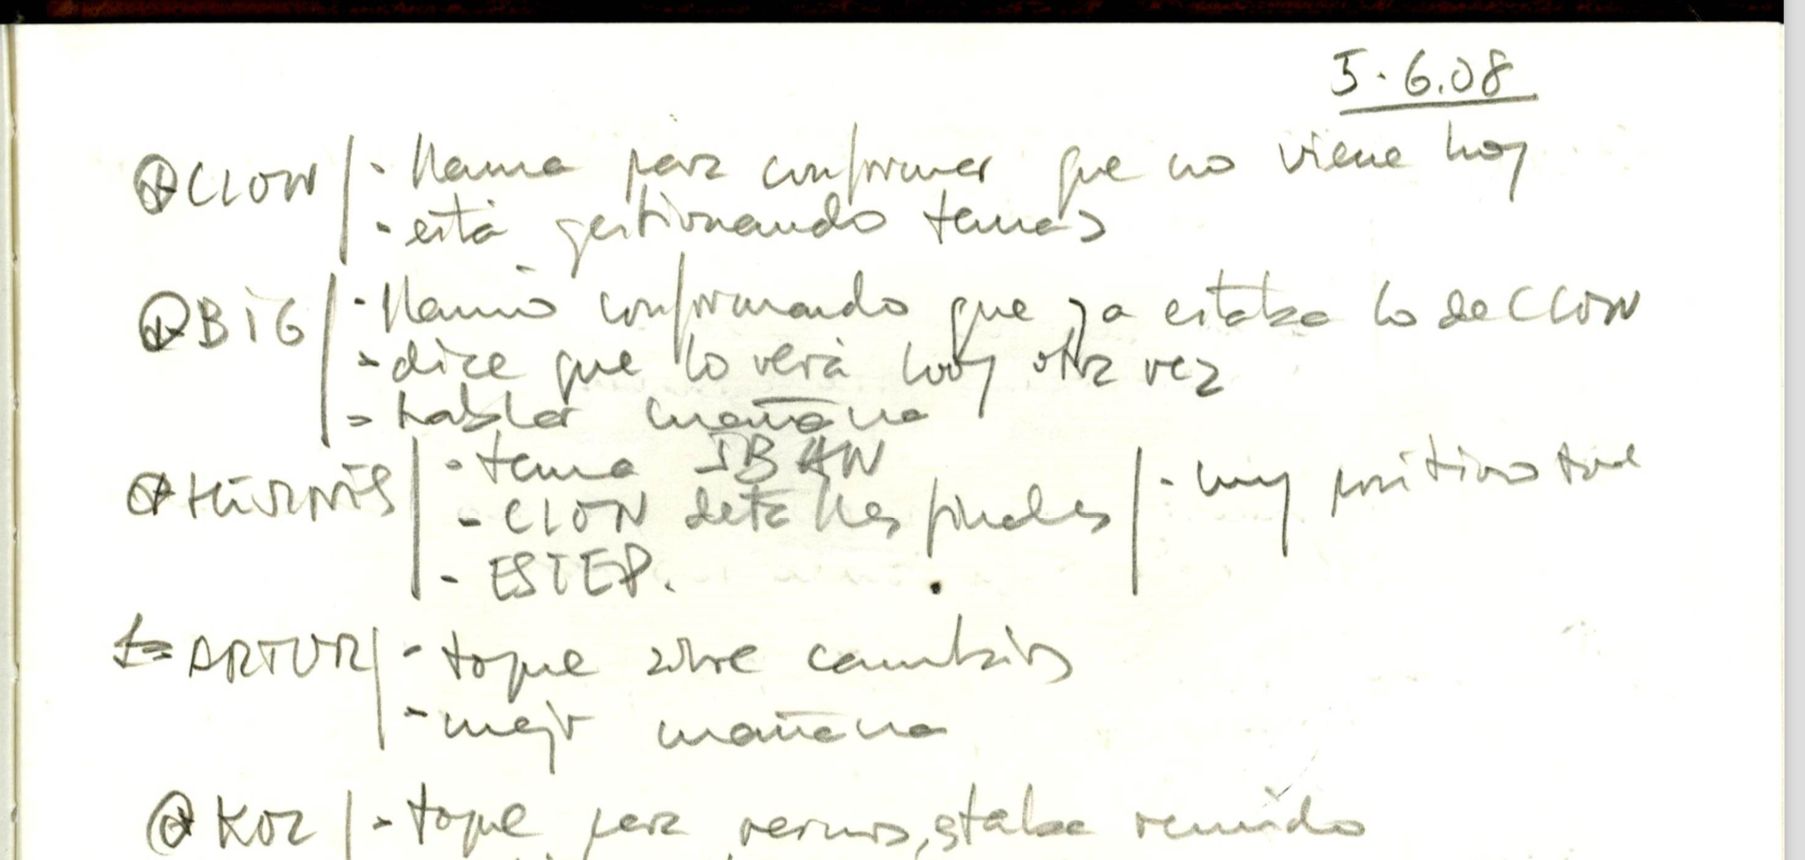 5.6.08
CLON | - llama para confirmar que no viene hoy
- está gestionando temas
BIG | - llamó confirmando que ya estaba lo de CLON
- dice que lo verá hoy otra vez
- hablar mañana
- tema IBAN
- CLON detalles finales | - muy positivo
- ESTEP.
ARTUR | - toque sobre cambios
- mejor mañana
KOZ | - toque para vernos, estaba reunido